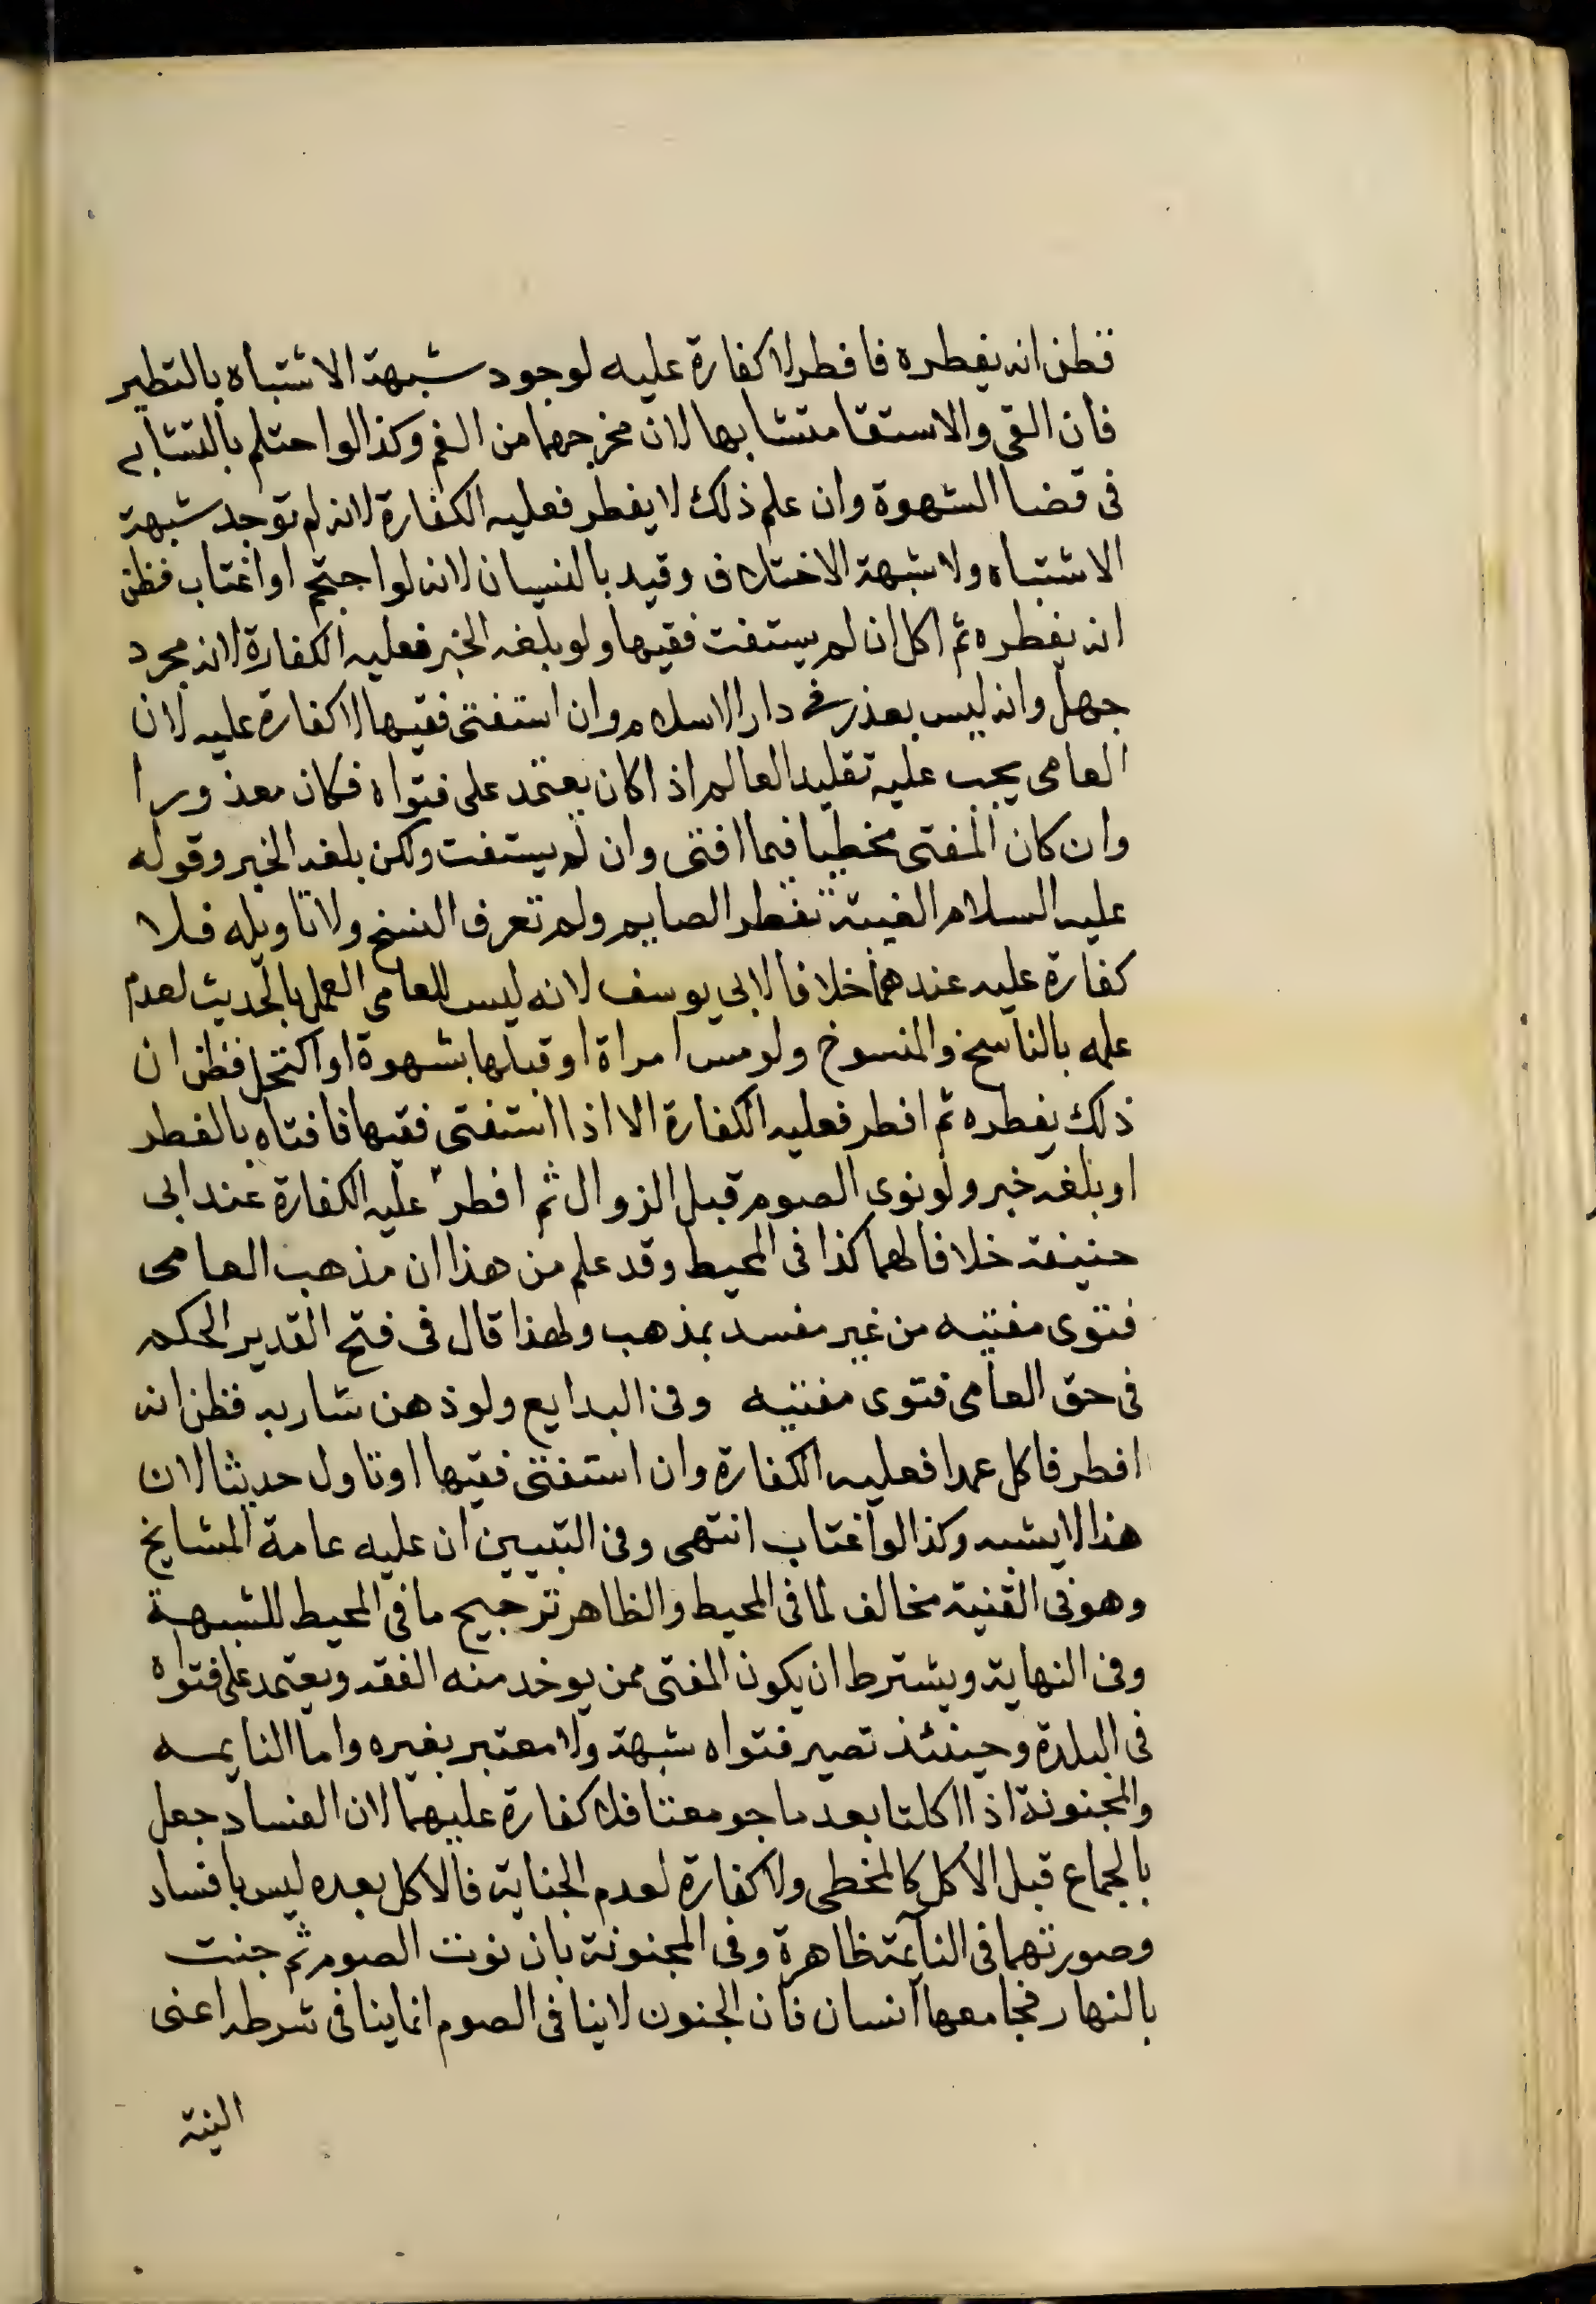 فظن انه يفطره فافطر لا كفارة عليه لوجود شبهة الاشتباه بالنظير
فان القى والاستقا متشابها لان مخرجهما من الفم وكذا لو احتلم بالتشابه
فى قضا الشهوة وان علم ذلك لا يفطر فعليه الكفارة لانه لم توجد شبهة
الاشتباه ولا شبهة الاختلاف وقيد بالنسيان لانه لو احتجم او اغتاب فظن
انه يفطره ثم اكل ان لم يستفت فقيها ولو بلغه الخبر فعليه الكفارة لانه مجرد
جهل وانه ليس بعذر فى دار الاسلام وان استفتى فقيها لا كفارة عليه لان
العامى يجب عليه تقليد العالم اذا كان يعتمد على فتواه فكان معذورا
وان كان المفتى مخطيا فيما افتى وان لم يستفت ولكن بلغه الخبر وقوله
عليه السلام الغيبة تفطر الصايم ولم تعرف النسخ ولا تاويله فلا
كفارة عليه عندهما خلافا لابى يوسف لانه ليس للعامى العمل بالحديث لعدم
علمه بالناسخ والمنسوخ ولو مس امراة او قبلها بشهوة او اكتحل فظن ان
ذلك يفطره ثم افطر فعليه الكفارة الا اذا استفتى فقيها فافتاه بالفطر
او بلغه خبر ولو نوى الصوم قبل الزوال ثم افطر عليه الكفارة عند ابى
حنيفة خلافا لهما كذا فى المحيط وقد علم من هذا ان مذهب العامى
فتوى مفتيه من غير مفسد بمذهب ولهذا قال فى فتح القدير الحكم
فى حق العامى فتوى مفتيه وفى البدايع ولو ذهن شاربه فظن انه
افطر فاكل عمدا فعليه الكفارة وان استفتى فقيها او تاول حديثا لان
هذا لا يشبه وكذا لو اغتاب انتهى وفى التبيين ان عليه عامة المشايخ
وهو فى القنية مخالف لما فى المحيط والظاهر ترجيح ما فى المحيط للشبهة
وفى النهاية ويشترط ان يكون المفتى ممن يوخد منه الفقه ويعتمد على فتواه
فى البلدة وحينئذ تصير فتواه شبهة ولا معتبر بغيره واما النايمه
والمجنونة اذا اكلتا بعد ما جومعتا فلا كفارة عليهما لان الفساد جعل
بالجماع قبل الاكل كالمخطى ولا كفارة لعدم الجناية فالاكل بعده ليس بافساد
وصورتهما فى النايمة ظاهرة وفى المجنونة بان نوت الصوم ثم جنت
بالنهار فجامعها انسان فان الجنون لا ينافى الصوم انما ينافى شرطه اعنى
النية